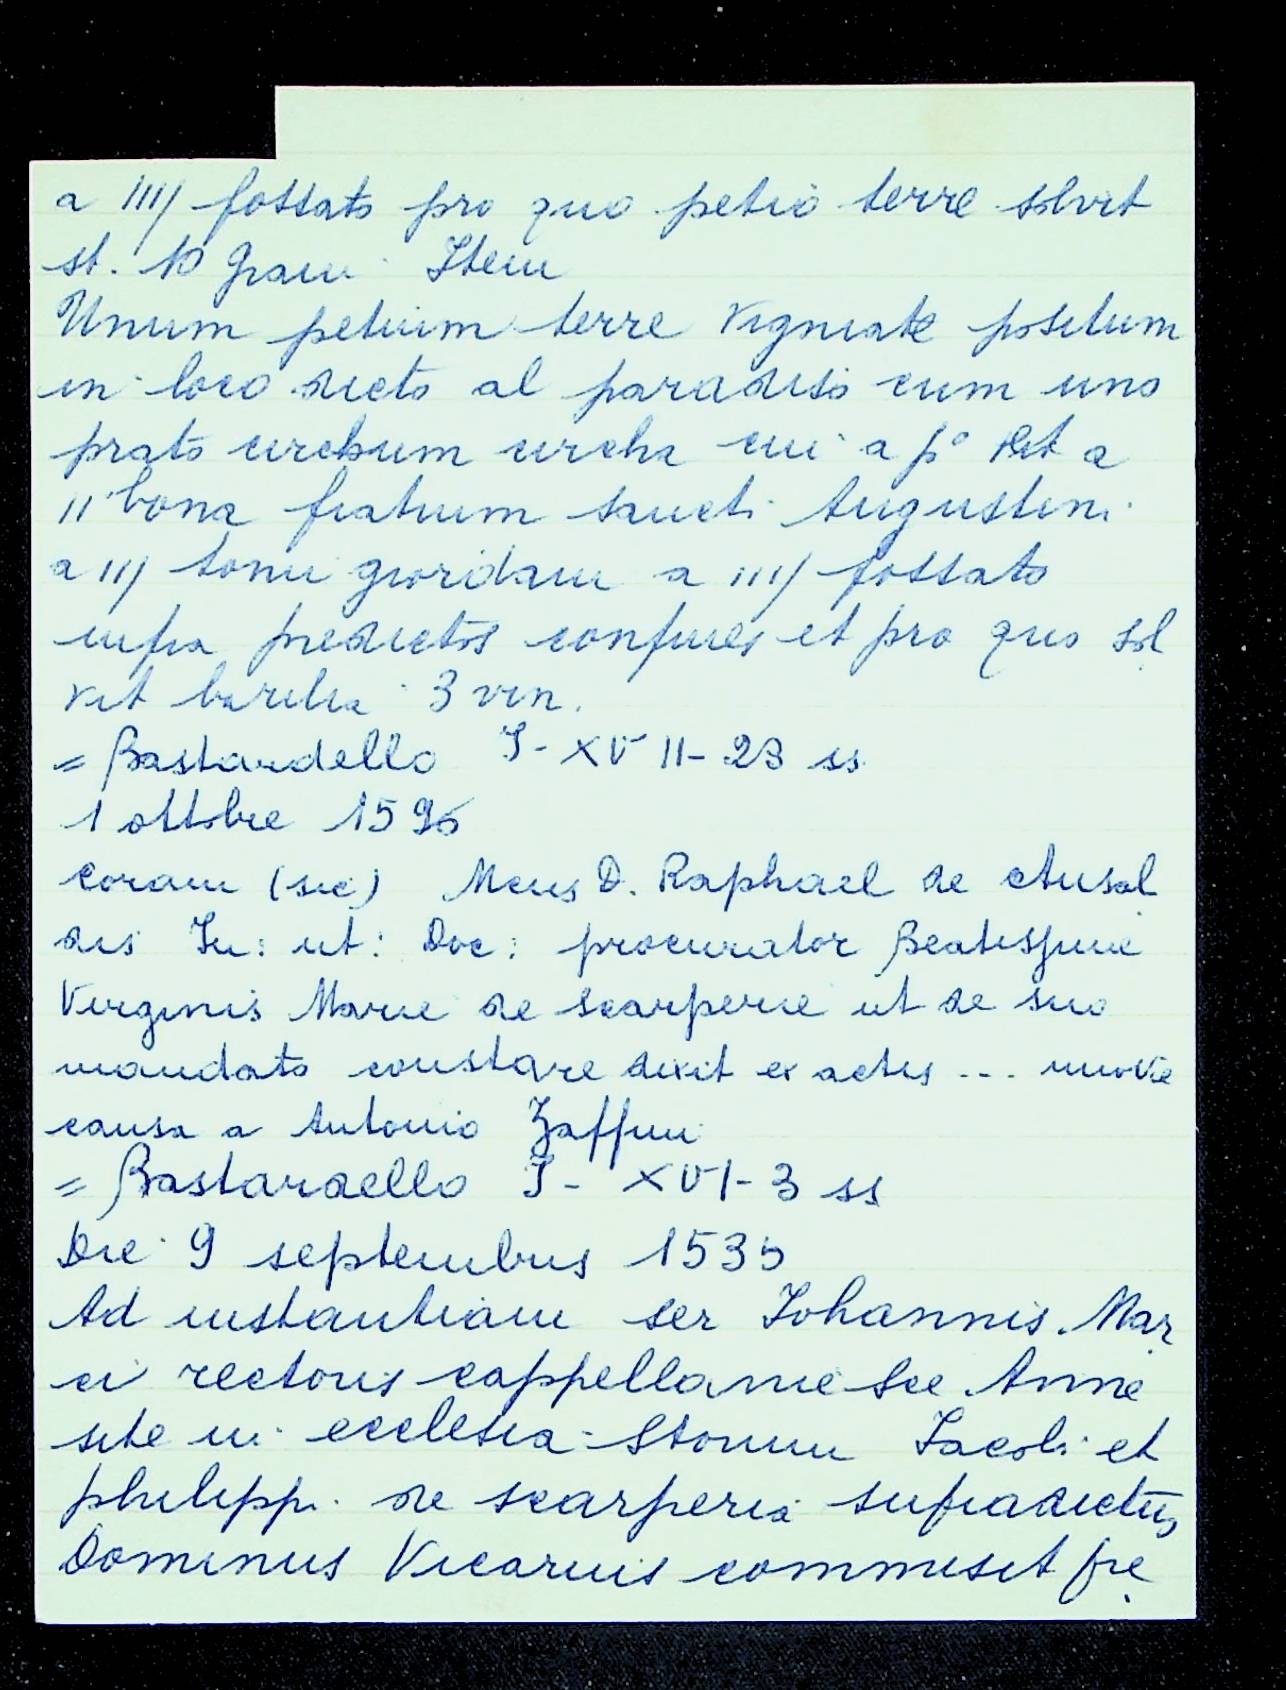 a IIIJ fossato pro quo petio terre solvit
st. 10 grani Item
Unum petium terre vigniate positum
in loco dicto al paradiso cum uno
prato circhum circha cui a p° via a
II bona fratrum sancti Augustini
a IIJ Tonii giordani a IIIJ fossato
infra predictos confines et pro quo sol
vit barilia 3 vin.
= Bastardello I - XVII - 23 ss
1 ottobre 1596
coram (sic) Meus D. Raphael de Ansal
dis Iu: ut: Doc: procurator Beatissime
Virginis Marie de scarperie ut de suo
mandato constare dixit ex actis ... movie
causa a Antonio Zaffini
= Bastardello I - XVI - 3 ss
Die 9 septembris 1535
Ad instantiam ser Johannis Mar
ci rectoris cappellanie Sce Anne
site in ecclesia Storum Jacobi et
philippi de scarperia supradictus
Dominus Vicarius commisit pre